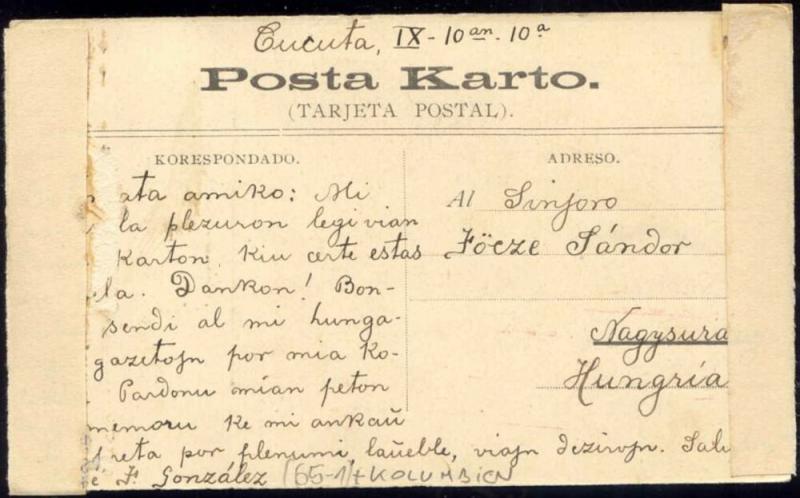 Cucuta, IX - 10an. 10a
Posta Karto.
(TARJETA POSTAL).
KORESPONDADO.
ADRESO.
ata amiko: Mi
la plezuron legi vian
karton, kiu certe estas
ela. Dankon! Bon-
sendi al mi hunga-
gazetojn por mia ko-
Pardonu mian peton
memoru ke mi ankaŭ
reta por plenumi, laŭeble, viajn dezirojn. Salu
é Js. González (65-1)+KOLUMBIEN
Al Sinjoro
Föcze Sándor
Nagysura
Hungría